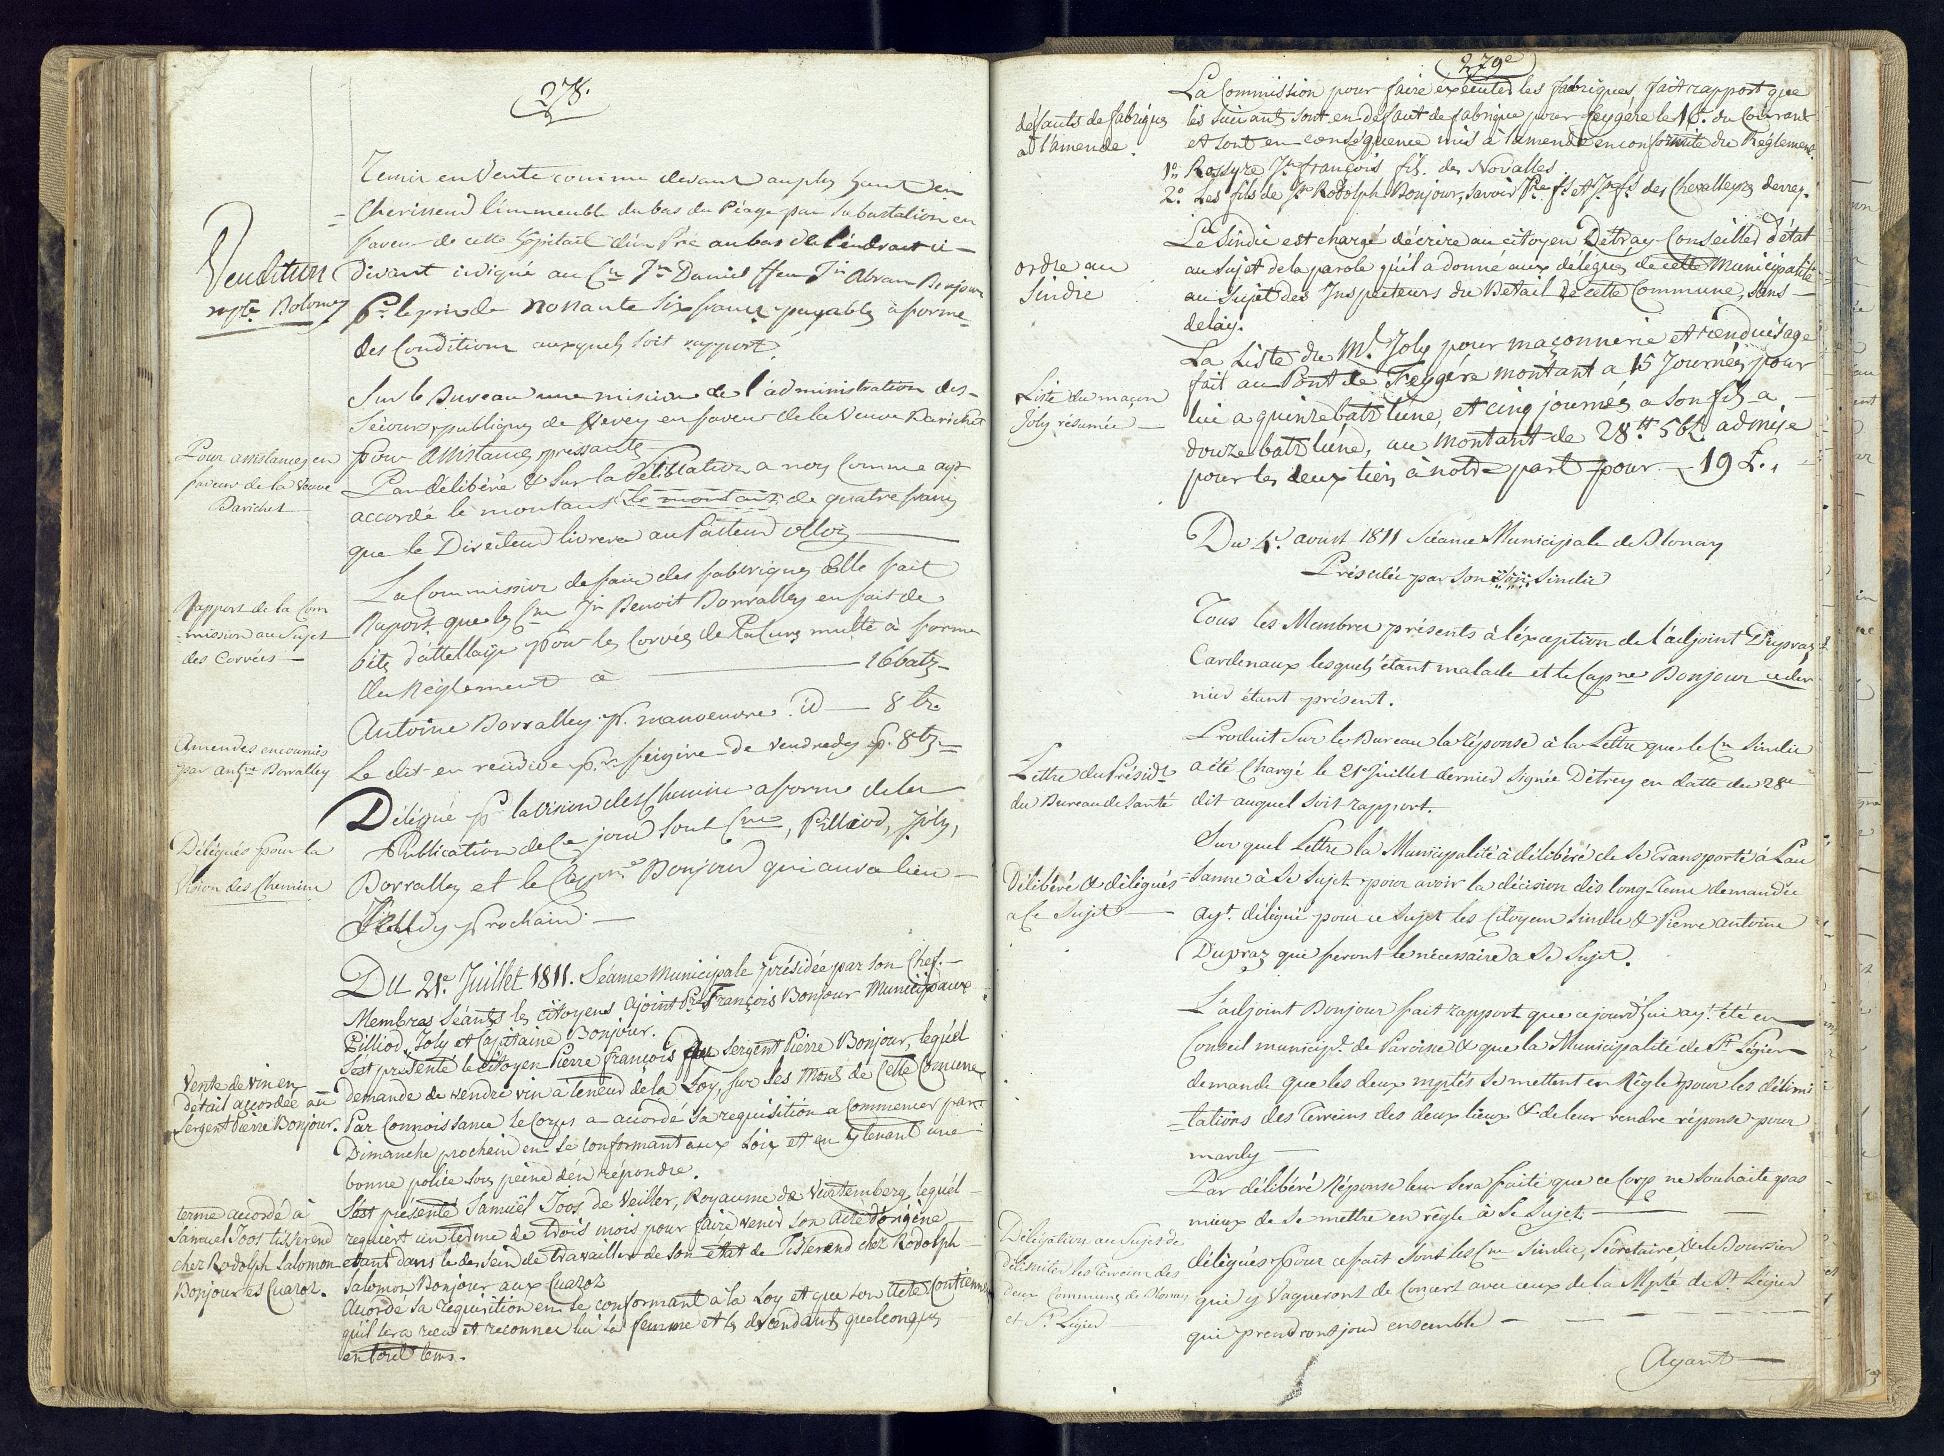 278.
Venditun
Tenir en Vente comme devant au plus haut en
Cherisseur l'immeuble du bas du Péage par Subastation en
faveur de cette hôpitail d'un Pré au bas de l'endroit ci-
divant indiqué au Cn Jn Daniel ffeu Jn Abram Bonjour
Pr le prix de nonante six francs payables à forme
des Conditions auxquels soit rapport.
Pour assistance en
faveur de la Veuve
Barichet
Sur le Bureau une missive de l'administration des
Sécours publiques de Vevey en faveur de la Veuve Barichet
pour assistances pressantes
Par délibéré & sur la a nous Comme ayt
accordé le montant le montant de quatre francs
que le Directeur livrera au Pasteur
Rapport de la Com
mission au Sujet
des Corvées
La Commission de faire des fabriques Elle fait
Raport que les Cns Jn Benoit Borralley en fait de
bêtes d'attellage pour les Corvées de multé à forme
du Réglement à 16 batz
Amendes encourues
par antne Borralley
Antoine Borralley pr manoeuvre id 8 btz
Le dit en récidive pr feigire de vendredy pr 8 btz
Délégués pour la
Vision des Chemins
Délégué pr la vision des Chemins a forme de la
Publication de Ce jour sont Cns, Pilliod, Joly,
Borralley et le Capne Bonjour qui aura lieu
Jeudy prochain.
Du 21e Juillet 1811. Séance Municipale présidée par son Chef.
Membres séants les citoyens ajoint Pre François Bonjour Municipaux
Pilliod, Joly et Capitaine Bonjour.
Vente de vin en
détail accordée au
Sergent Pierre Bonjour.
S'est présenté le Citoyen Pierre françois ffeu Sergent Pierre Bonjour, lequel
demande de vendre vin à teneur de la Loy, sur les Monts de Cette Comune
Par Connoissance le Corps a accordé sa requisition a Commencer par
Dimanche prochein en se conformant aux Loix et en y tenant une
bonne police sous peine d'en répondre.
terme accordé à
Samuel Joos tisserend
chez Rodolph Salomon
Bonjour es Cuaroz.
S'est présenté Samuël Joos de Veiller, Royaume de Vurtemberg, lequél
requiert un terme de trois mois pour faire venir son Acte d'origine
etant dans le dessein de travailler de son état de Tisserend chez Rodolph
Salomon Bonjour aux Cuaroz
Accordé sa requisition en se conformant a la Loy et que son acte Contienne
qu'il sera reçu et reconnu lui sa femme et ls descendants quelconques
en tout tems.
279e
défauts de fabriques
à l'amende.
La Commission pour faire exécuter les fabriques, fait rapport que
les suivants sont en défaut de fabrique pour feygére le 16. du Courant
et sont en conséquence mis à l'amende en conformité du Réglement.
1o Rossyre Jn françois fils des Novalles
2o Les fils de Jn Rodolph Bonjour, savoir Pre fs et Jn fs des Chevalleyres derrey.
ordre au
Sindic
Le Sindic est chargé d'écrire au citoyen Détray Conseiller d'état
au sujet de la parole qu'il a donné aux délégués de cette Municipalité
au Sujet des Inspecteurs du Betail de cette Commune, sans
delay.
Liste du maçon
Joly résumée
La Liste du Mr Joly pour maçonnerie et renduisage
fait au Pont de Feygére montant a 15 Journées pour
lui a quinze batz l'une, et cinq journées a son fils a
douze batz l'une, au montant de 28 tt 5 bt admise
pour les deux tiers à notre part pour 19 L.
Du 4e aoust 1811 Séance Municipale de Blonay
Présidée par son Son Sindic
Tous les Membres présents à l'éxception de l'adjoint Dupraz,
Cardenaux lesquels étant malade et le Capne Bonjour ce der
nier étant présent.
Lettre du Présidt
du Bureau de Santé
Produit sur le Bureau la réponse à la Lettre que le Cn Sindic
a été Chargé le 21e Juillet dernier signée Détrey en datte du 28e
dit auquel soit rapport.
Délibéré & délégués
à Ce Sujet
Sur quel Lettre la Municipalité à délibéré de se Transporté à Lau
sanne à Se Sujet pour avoir la décision dès long-Tems demandée
ayt. délégué pour ce sujet les Citoyens Sindic & Pierre Antoine
Dupraz qui feront le nécessaire a Se Sujet.
L'adjoint Bonjour fait rapport que cejourd'hui ayt. été en
Conseil municipl. de Paroisse & que la Municipalité de St Légier
demande que les deux mptés se mettent en Règle pour les délimi
tations des Terreins des deux lieux & de leur rendre réponse pour
mardy
Par délibéré Réponse leur Sera faite que ce Corps ne Souhaite pas
mieux de Se mettre en règle à Se Sujet.
Délégation au Sujet de
délimiter les Terreins des
deux Communes de Blonay
et St Légier
délégués pour ce fait sont les Cns Sindic, Sécretaire, & le Boursier
qui y Vaqueront de Concert avec ceux de la Mpté de St Légier
qui prendront jour ensemble
Ayant